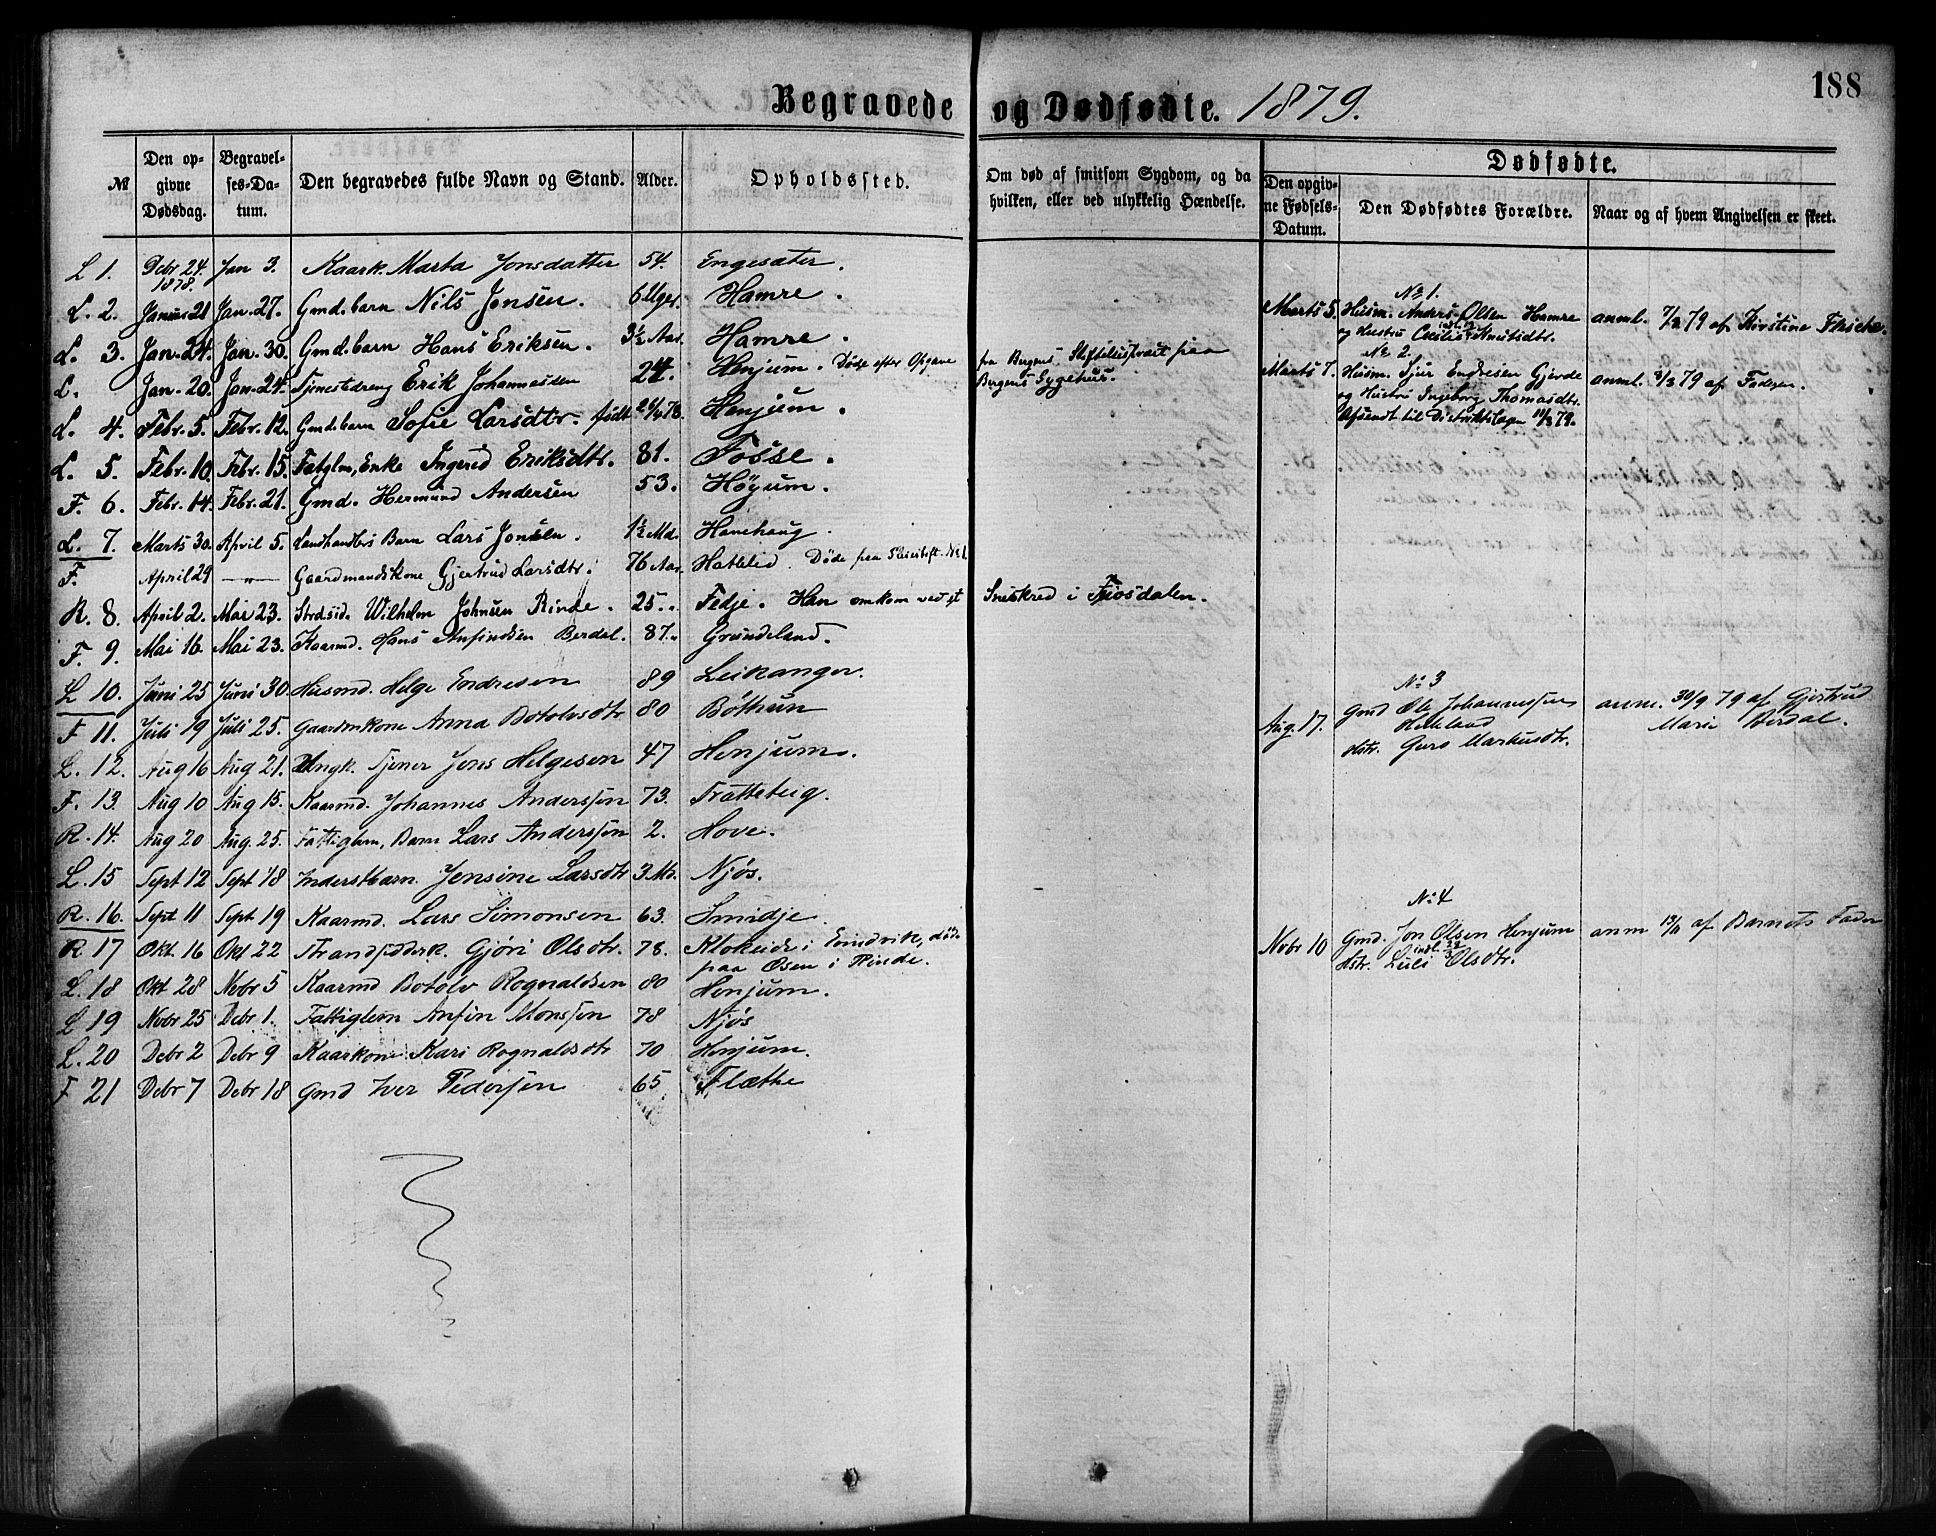 188
Begravede og Dødfødte. 1879.
№
Den opgivne Dødsdag.
Begravelses-Datum.
Den begravedes fulde Navn og Stand.
Alder.
Opholdssted.
Om død af smitsom Sygdom, og da hvilken, eller ved ulykkelig Hændelse.
Dødfødte.
Den opgivne Fødsels-Datum.
Den Dødfødtes Forældre.
Naar og af hvem Angivelsen er skeet.
L 1. Debr 24. 1878. Jan 3. Kaark. Marta Jonsdatter 54. Engesæter.
L. 2. Januar 21 Jan. 27. Gmd. barn Nils Jonsen. 6 Uger. Hamre.
L. 3. Jan. 24. Jan. 30. Gmd. barn Hans Eriksen. 3½ Aar. Hamre.
L. Jan. 20. Jan. 24. Tjenestedreng Erik Johannessen 24. Henjum. Døde efter Opgave fra Bergens Bergens Sygehus.
L. 4. Febr. 5. Febr. 12. Gmd. barn Sofie Larsdtr. født Henjum.
L. 5. Febr. 10. Febr. 15. Fatglm, Enke Ingerid Eriksdtr. 81. Fosse.
F. 6. Febr. 14. Febr. 21. Gmd. Hermund Andersen 53. Høyum.
L. 7. Marts 30. April 5. Landhandlers Barn Lars Jonsen. 1½ Md. Hanehaug.
F. April 29 —"— Gaardmandskone Gjertrud Larsdtr. 76 Aar. Hatlelid. Døde paa
R. 8. April 2. Mai 23. Strdsid. Wilhelm Johnsen Rinde. 25. Fedje. Han omkom ved et Sneskred i
F. 9. Mai 16. Mai 23. Kaarmd. Hans Anfindsen Berdal. 87. Grindeland.
L 10. Juni 25 Juni 30. Husmd. Helge Endresen 89 Leikanger.
F 11. Juli 19 Juli 25. Gaardmkone Anna Botolvsdtr 80 Bøthun
L. 12. Aug 16 Aug 21. Ungk. Tjener Jens Helgesen 47 Henjum.
F. 13. Aug 10 Aug 15. Kaarmd. Johannes Anderssøn 73. Trætteteig.
R. 14. Aug 20 Aug. 25. Fattiglem, Barn Lars Anderssøn 2. Hove.
L. 15 Sept 12 Sept 18 Inderstbarn. Jensine Larsdtr 3 Md. Njøs.
R. 16. Sept 11 Sept 19 Kaarmd. Lars Simonsen 63. Smidje.
R 17 Okt 16 Okt 22 Gjøri Olsdtr. 78. i Evindvik, død paa Øsen i Rinde.
L. 18 Okt 28 Nobr 5 Kaarmd Botolv Rognaldsen 80 Henjum.
L 19 Nobr 25 Debr 1. Fattiglem Anfin Monssøn 78 Njøs
L. 20 Debr 2 Debr 9 Kaarkone Kari Rognaldsdtr 70 Henjum.
F 21 Debr 7 Debr 18 Gmd Iver Pederssøn 65 Flæthe
№ 1.
Marts 5. Husm. Anders Olsen Hamre anml. 7/3 79 af Kirstine
og Hustru Cecilie Knutsdtr.
№ 2.
Marts 7. Husm. Sjur Endresen Gjerde anml. 8/3 79 af Faderen.
og Hustru Ingeborg Thomasdtr.
Afsendt til Distriktslægen 11/3 79.
№ 3
Aug. 17. Gmd Ole Johannessen anm. 30/9 79 af Gjertrud Marie
Hstr. Guro Markusdtr.
№ 4
Nobr 10 Gmd. Jon Olsen Henjum anm 13/11 af Barnets Fader
Hstr. Olsdtr.